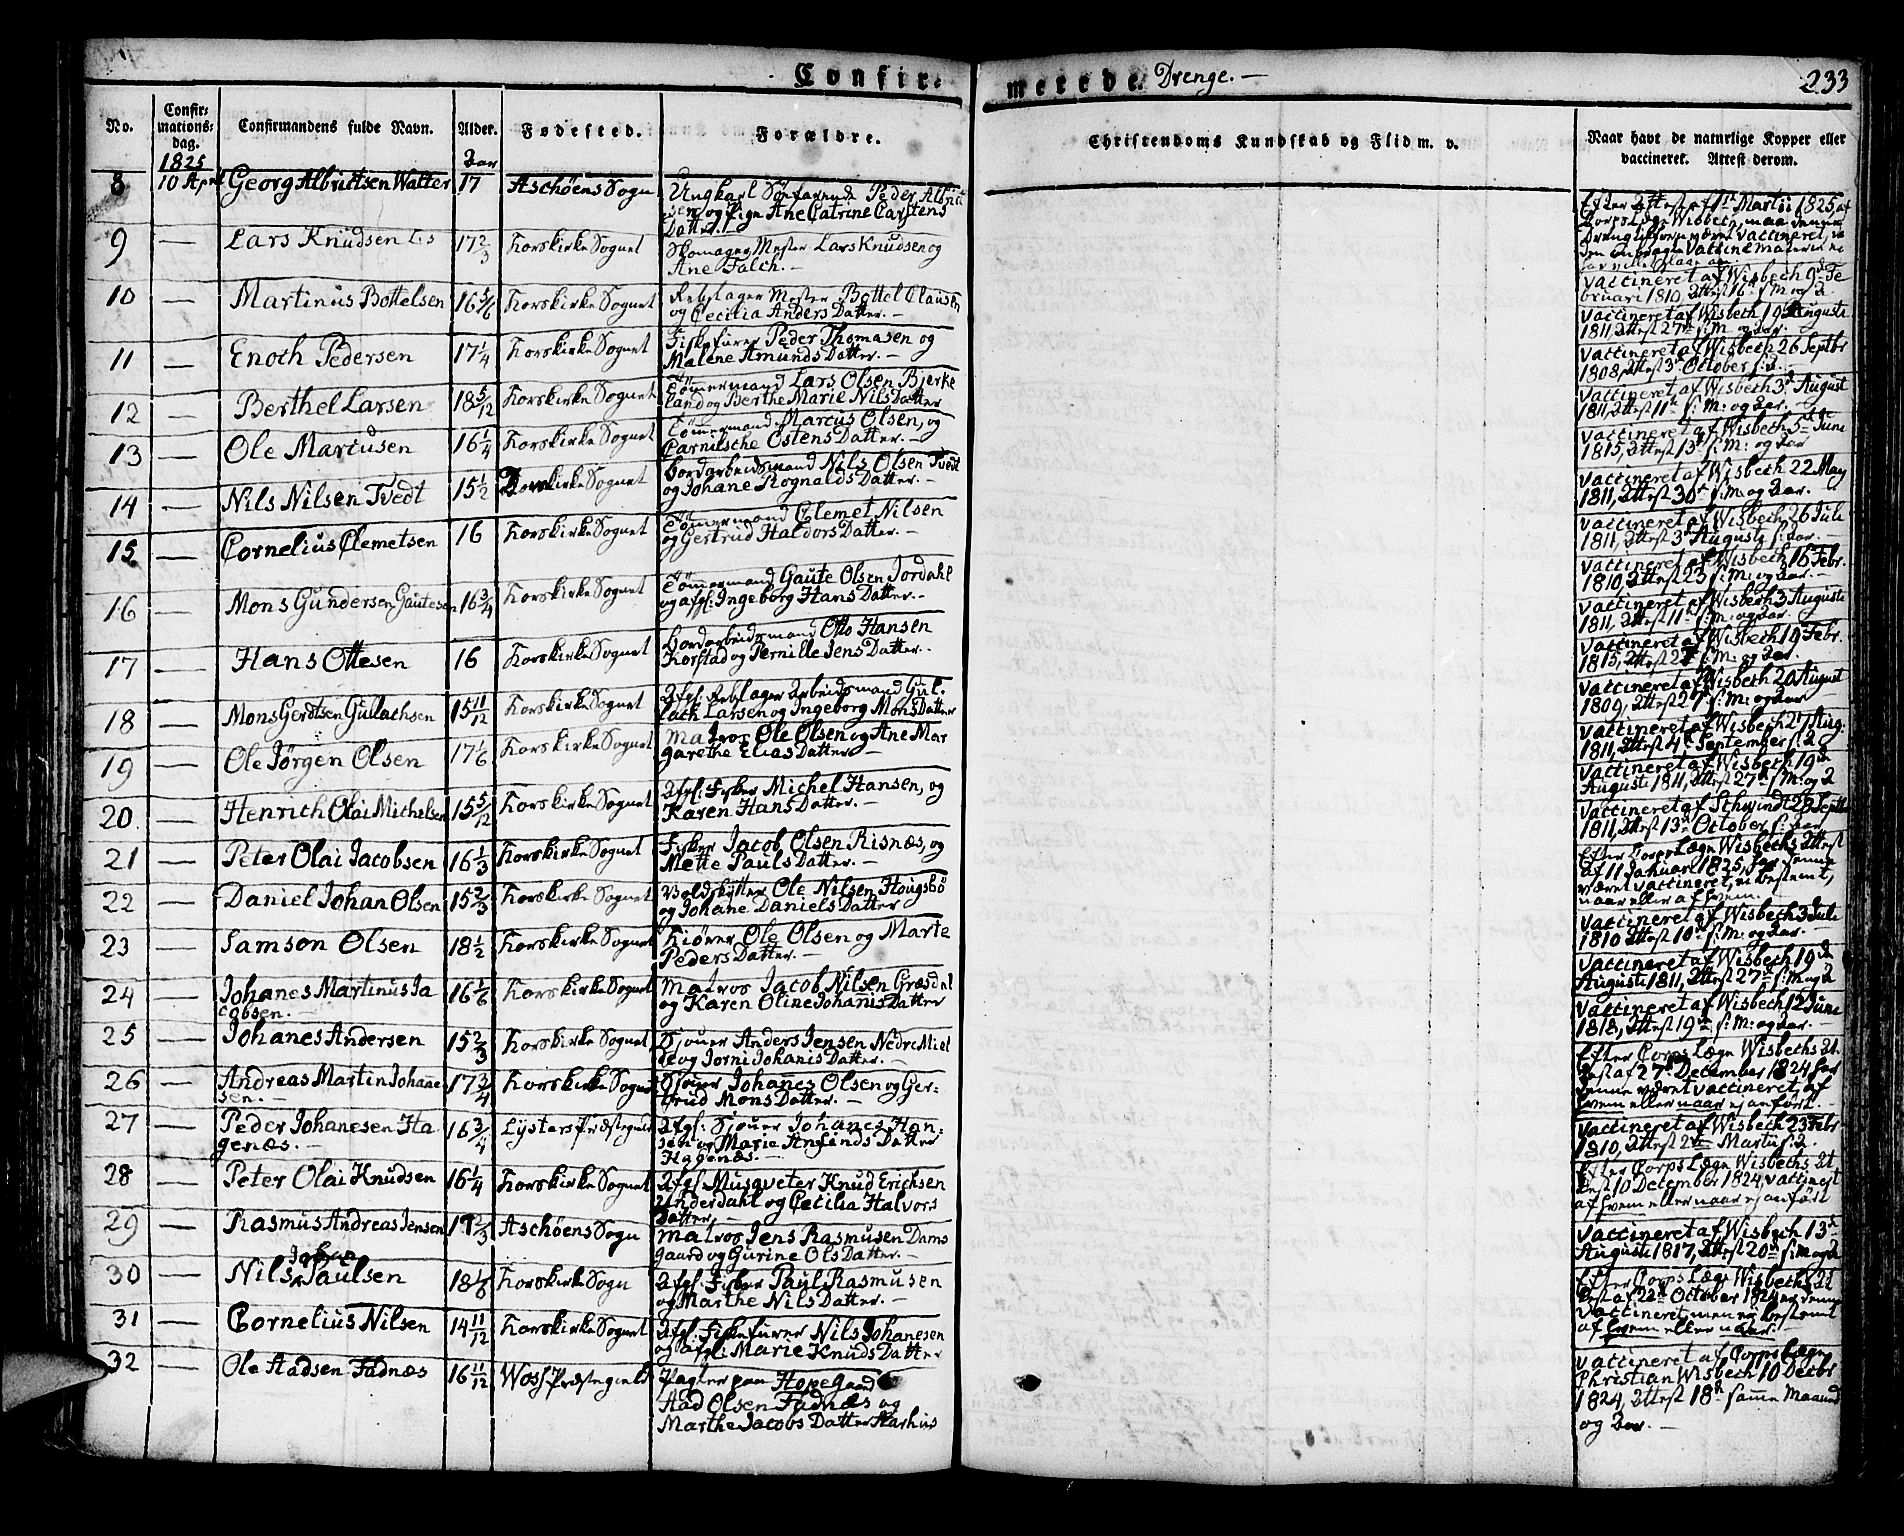 Confirmerede Drenge. — 233
No. Confirmationsdag. Confirmandens fulde Navn. Alder. Fødested. Forældre. Christendoms Kundskab og Flid m. v. Naar havt de naturlige Kopper eller vaccineret. Attest derom.
1825 Aar
8 10 April Georg Albrittsen Walter 17 Aschöens Sogn Ungkarl Söefarende Peder Albrit
sen og Pige Ane Catrine Carstens
Datter.
Efter Attest af 1ste Martii 1825 af
Corps Læge Wisbech, maa denne
Dreng
9 — Lars Knudsen 17 2/3 Korskirke Sognet Skomager Mester Lars Knudsen og
Ane Falch. —
Vaccineret af Wisbech 6d Fe
bruari 1810, Attest 16d s: M. og A
10 — Martinus Bottelsen 16 5/6 Korskirke Sognet Rebslager Mester Bottel Clausen
og Cecilia Anders Datter. —
Vaccineret af Wisbech 19 Augusti
1811, Attest 27d s: M. og Aar.
11 — Enoch Pedersen 17 1/4 Korskirke Sognet Fiskefürer Peder Thomasen og
Malene Amunds Datter. —
Vaccineret af Wisbech 26 Septbr
1808, Attest 3d October s: A.
12 — Berthel Larsen 18 5/12 Korskirke Sognet Tömermand Lars Olsen Bjerke
land og Berthe Marie Nils Datter
Vaccineret af Wisbech 3d August
1811, Attest 11d s: M: og Aar.
13 — Ole Marcusen 16 1/4 Korskirke Sognet Tömermand Marcus Olsen, og
Carnilsche Ostens Datter. —
Vaccineret af Wisbech 5d June
1815, Attest 13d s: M: og Aar
14 — Nils Nilsen Tvedt 15 1/2 Korskirke Sognet Bordarbeidsmand Nils Olsen Tvedt
og Johane Rognalds Datter. —
Vaccineret af Wisbech 22 May
1811, Attest 30d s: M. og Aar.
15 — Cornelius Clemetsen 16 Korskirke Sognet Tömermand Clemet Nilsen
og Gertrud Haldors Datter. —
Vaccineret af Wisbech 26 Juli
1811, Attest 3d Augusti s: Aar.
16 — Mons Gundersen Gautesen 16 3/4 Korskirke Sognet Tömermand Gaute Olsen Jordahl
og afgl: Ingeborg Hans Datter. —
Vaccineret af Wisbech 16 Febr.
1810, Attest 23 s: M: og Aar. —
17 — Hans Ottesen 16 Korskirke Sognet Bordarbeidsmand Otto Hansen
Korstad og Pernille Jens Datter. —
Vaccineret af Wisbech 3 Augusti
1811, Attest 11d s: M: og Aar
18 — Mons Gerdtsen Gulachsen 15 11/12 Korskirke Sognet Afgl: Rebslager Arbeidsmand Gul-
lach Larsen og Ingeborg Mons Datter
Vaccineret af Wisbech 19 Febr.
1815, Attest s: M: og Aar
19 — Ole Jörgen Olsen 17 1/6 Korskirke Sognet Matros Ole Olsen og Ane Mar
garethe Elias Datter —
Vaccineret af Wisbech 20 August
1809, Attest 27d s: M: og Aar
20 — Henrich Olai Michelsen 15 5/12 Korskirke Sognet Afgl: Fisker Michel Hansen, og
Karen Hans Datter. —
Vaccineret af Wisbech 27 Aug.
1811, Attest 4d September s: A
21 — Peter Olai Jacobsen 16 1/3 Korskirke Sognet Fisker Jacob Olsen Risnæs, og
Mette Pauls Datter. —
Vaccineret af Wisbech 19d
Augusti 1811, Attest 27d s: M: og A
22 — Daniel Johan Olsen 15 2/3 Korskirke Sognet Voldskytter Ole Nilsen Hougsbö
og Johane Daniels Datter
Vaccineret af Schwindt Septbr
1811, Attest 13d October s: Aar
23 — Samson Olsen 18 1/2 Korskirke Sognet Kiörer Ole Olsen og Marte
Peders Datter. —
Efter Corps Læge Wisbechs Attest
af 11 Januari 1825, har denne
været vaccineret, ei bestemt,
naar eller af hvem.
24 — Johanes Martinus Ja
cobsen. — 16 1/6 Korskirke Sognet Matros Jacob Nilsen Græsdal
og Karen Oline Johanis Datter
Vaccineret af Wisbech 3 Juli
1810 Attest 10d s: M: og Aar.
25 — Johanes Andersen 15 2/3 Korskirke Sognet Sjouer Anders Jensen Nedre Miel
de og Jorni Johanis Datter. —
Vaccineret af Wisbech 19d
Augusti 1811, Attest 27d s: M: og A
26 — Andreas Martin Johane
sen. — 17 3/4 Korskirke Sognet Sjouer Johanes Olsen og Ger-
trud Mons Datter. —
Vaccineret af Wisbech 12 June
1818, Attest 19d s: M: og Aar. —
27 — Peder Johanesen Ha
genæs. — 16 3/4 Lysters Præstegield Afgl: Sjouer Johanes Han-
sen og Marie Anfinds Datter
Hagenæs. —
Efter Corps Læge Wisbechs At-
test af 27d December 1824 har
denne været vaccineret, af
hvem eller naar ej anfört. —
28 — Peter Olai Knudsen 16 1/4 Korskirke Sognet Afgl: Musqveter Knud Erichsen
Underdahl og Cecilia Halvors
Datter —
Vaccineret af Wisbech 23 Febr
1810, Attest 2den Martii s: A.
29 — Rasmus Andreas Jensen 2/3 Aschöens Sogn Matros Jens Rasmusen Dams
gaard og Gurine Ols Datter. —
Efter Corps Læge Wisbechs At
test 10 December 1824, vaccineret
af hvem eller naar ej anfört
30 — Nils Johan Paulsen 18 1/6 Korskirke Sogn Afgl: Fisker Paul Rasmusen
og Marthe Nils Datter. —
Vaccineret af Wisbech 13d
Augusti 1817, Attest 20d s: M: og A
31 — Cornelius Nilsen 14 11/12 Korskirke Sognet Afgl: Fiskefürer Nils Johanesen
og afgl: Marie Knuds Datter
Efter Corps Læge Wisbechs At
test af 22d October 1824 er denne
vaccineret, men ei bestemt
af hvem eller naar. —
32 Ole Aadsen Fadnæs 16 11/12 Woss Præstegield Pagter paa Hopegaard
Aad Olsen Fadnæs og
Marthe Jacobs Datter Aarhus
Vaccineret af Corps Læge
Christian Wisbech 10 Decbr
1824, Attest 18d samme Maaned
og Aar. —